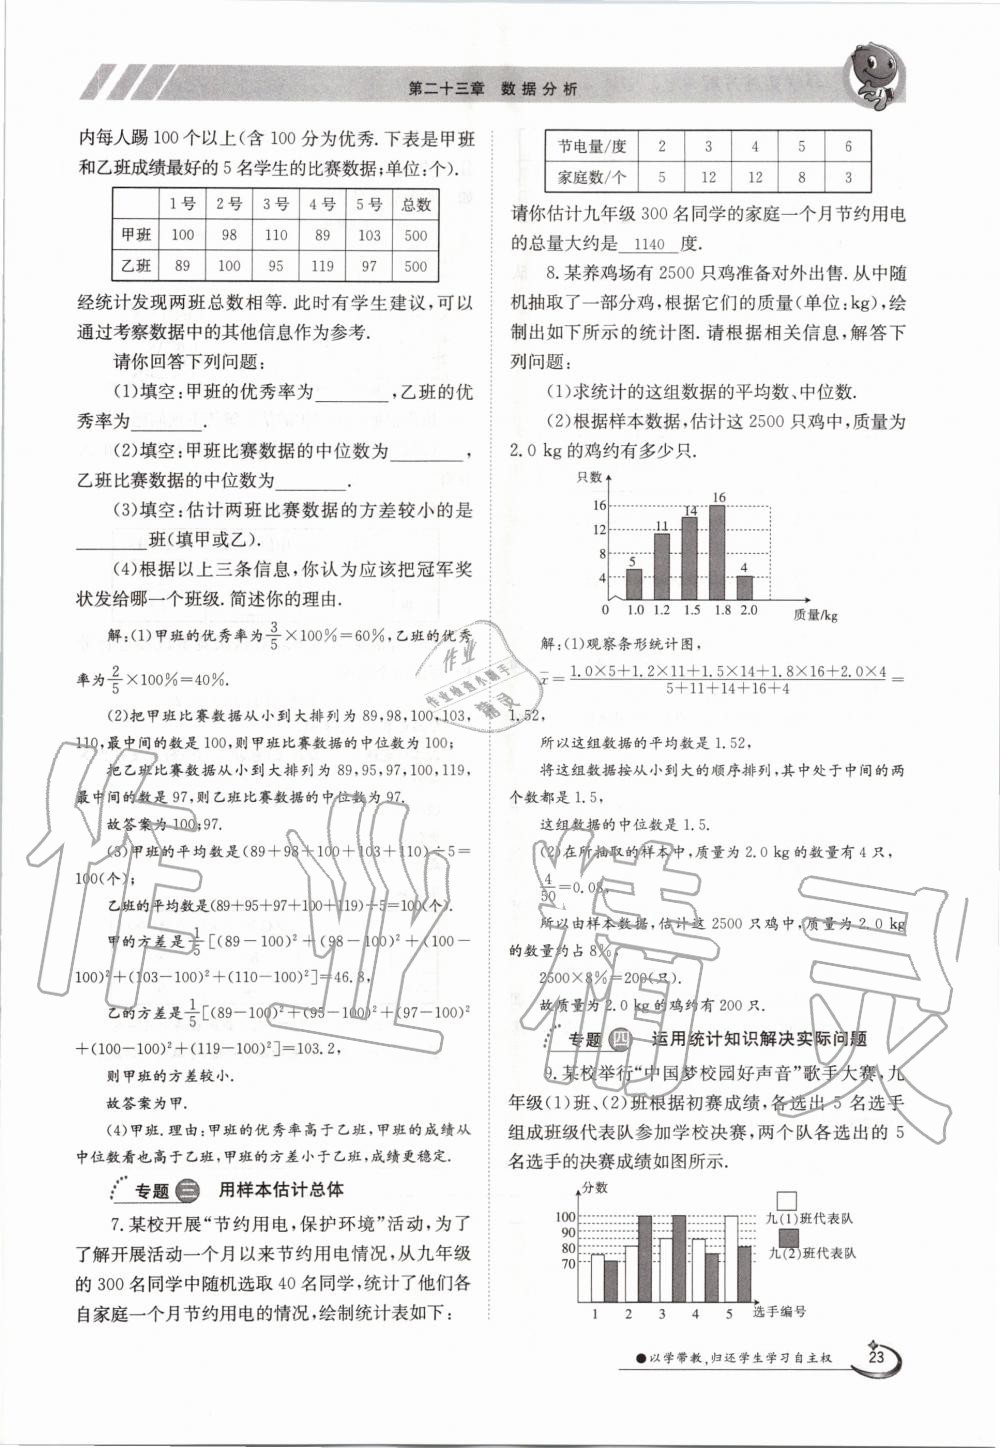 第二十三章 数据分析
内每人踢 100 个以上(含 100 分为优秀. 下表是甲班
和乙班成绩最好的 5 名学生的比赛数据;单位:个).
1号 2号 3号 4号 5号 总数
甲班 100 98 110 89 103 500
乙班 89 100 95 119 97 500
经统计发现两班总数相等. 此时有学生建议,可以
通过考察数据中的其他信息作为参考.
请你回答下列问题:
(1)填空:甲班的优秀率为________,乙班的优
秀率为________.
(2)填空:甲班比赛数据的中位数为________,
乙班比赛数据的中位数为________.
(3)填空:估计两班比赛数据的方差较小的是
________班(填甲或乙).
(4)根据以上三条信息,你认为应该把冠军奖
状发给哪一个班级. 简述你的理由.
解:(1)甲班的优秀率为3/5×100%=60%,乙班的优秀
率为2/5×100%=40%.
(2)把甲班比赛数据从小到大排列为 89,98,100,103,
110,最中间的数是 100,则甲班比赛数据的中位数为 100;
把乙班比赛数据从小到大排列为 89,95,97,100,119,
最中间的数是 97,则乙班比赛数据的中位数为 97.
故答案为 100;97.
(3)甲班的平均数是(89+98+100+103+110)÷5=
100(个);
乙班的平均数是(89+95+97+100+119)÷5=100(个).
甲的方差是1/5[(89-100)²+(98-100)²+(100-
100)²+(103-100)²+(110-100)²]=46.8,
乙的方差是1/5[(89-100)²+(95-100)²+(97-100)²
+(100-100)²+(119-100)²]=103.2,
则甲班的方差较小.
故答案为甲.
(4)甲班. 理由:甲班的优秀率高于乙班,甲班的成绩从
中位数看也高于乙班,甲班的方差小于乙班,成绩更稳定.
专题 三 用样本估计总体
7. 某校开展“节约用电,保护环境”活动,为了
了解开展活动一个月以来节约用电情况,从九年级
的 300 名同学中随机选取 40 名同学,统计了他们各
自家庭一个月节约用电的情况,绘制统计表如下:
节电量/度 2 3 4 5 6
家庭数/个 5 12 12 8 3
请你估计九年级 300 名同学的家庭一个月节约用电
的总量大约是 1140 度.
8. 某养鸡场有 2500 只鸡准备对外出售. 从中随
机抽取了一部分鸡,根据它们的质量(单位:kg),绘
制出如下所示的统计图. 请根据相关信息,解答下
列问题:
(1)求统计的这组数据的平均数、中位数.
(2)根据样本数据,估计这 2500 只鸡中,质量为
2.0 kg 的鸡约有多少只.
只数
16
12
8
4
5 11 14 16 4
0 1.0 1.2 1.5 1.8 2.0 质量/kg
解:(1)观察条形统计图,
x̄=(1.0×5+1.2×11+1.5×14+1.8×16+2.0×4)/(5+11+14+16+4)=
1.52,
所以这组数据的平均数是 1.52,
将这组数据按从小到大的顺序排列,其中处于中间的两
个数都是 1.5,
这组数据的中位数是 1.5.
(2)在所抽取的样本中,质量为 2.0 kg 的数量有 4 只,
4/50=0.08,
所以由样本数据,估计这 2500 只鸡中,质量为 2.0 kg
的数量约占 8%,
2500×8%=200(只).
故质量为 2.0 kg 的鸡约有 200 只.
专题 四 运用统计知识解决实际问题
9. 某校举行“中国梦校园好声音”歌手大赛,九
年级(1)班、(2)班根据初赛成绩,各选出 5 名选手
组成班级代表队参加学校决赛,两个队各选出的 5
名选手的决赛成绩如图所示.
分数
100
90
80
70
1 2 3 4 5 选手编号
九(1)班代表队
九(2)班代表队
●以学带教,归还学生学习自主权
23
作业精灵
作业
作业检查小助手
精灵